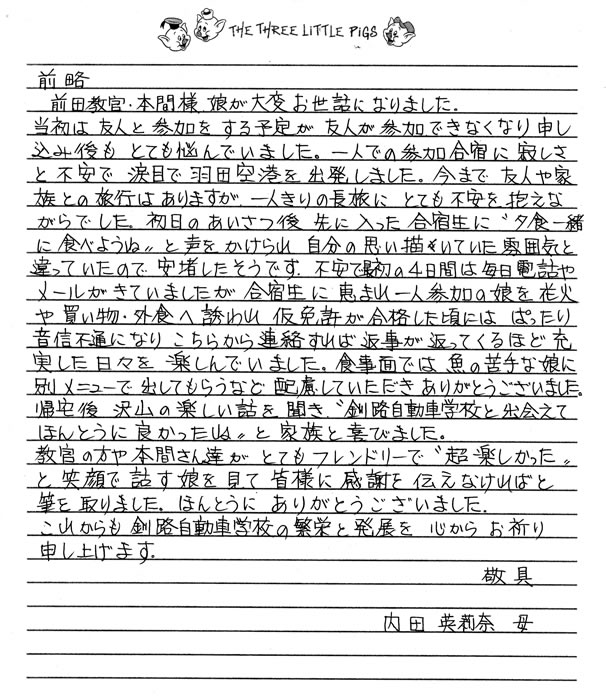 THE THREE LITTLE PIGS
前略
前田教官・本間様 娘が大変お世話になりました.
当初は友人と参加をする予定が友人が参加できなくなり申し
込み後もとても悩んでいました。一人での参加合宿に寂しさ
と不安で涙目で羽田空港を出発しました。今まで友人や家
族との旅行はありますが、一人きりの長旅にとても不安を抱えな
がらでした。初日のあいさつ後 先に入った合宿生に〝夕食一緒
に食べようね〟と声をかけられ 自分の思い描いていた雰囲気と
違っていたので安堵したそうです. 不安で最初の4日間は毎日電話や
メールがきていましたが 合宿生に恵まれ一人参加の娘を花火
や買い物・外食へ誘われ 仮免許が合格した頃には ぱったり
音信不通になり こちらから連絡すれば返事が返ってくるほど充
実した日々を楽しんでいました。食事面では魚の苦手な娘に
別メニューで出してもらうなど配慮していただきありがとうございました。
帰宅後 沢山の楽しい話を聞き〝釧路自動車学校と出会えて
ほんとうに良かったね〟と家族と喜びました。
教官の方や本間さん達がとてもフレンドリーで〝超楽しかった〟
と笑顔で話す娘を見て皆様に感謝を伝えなければと
筆を取りました。ほんとうにありがとうございました.
これからも釧路自動車学校の繁栄と発展を心からお祈り
申し上げます.
敬具
内田 英莉奈 母